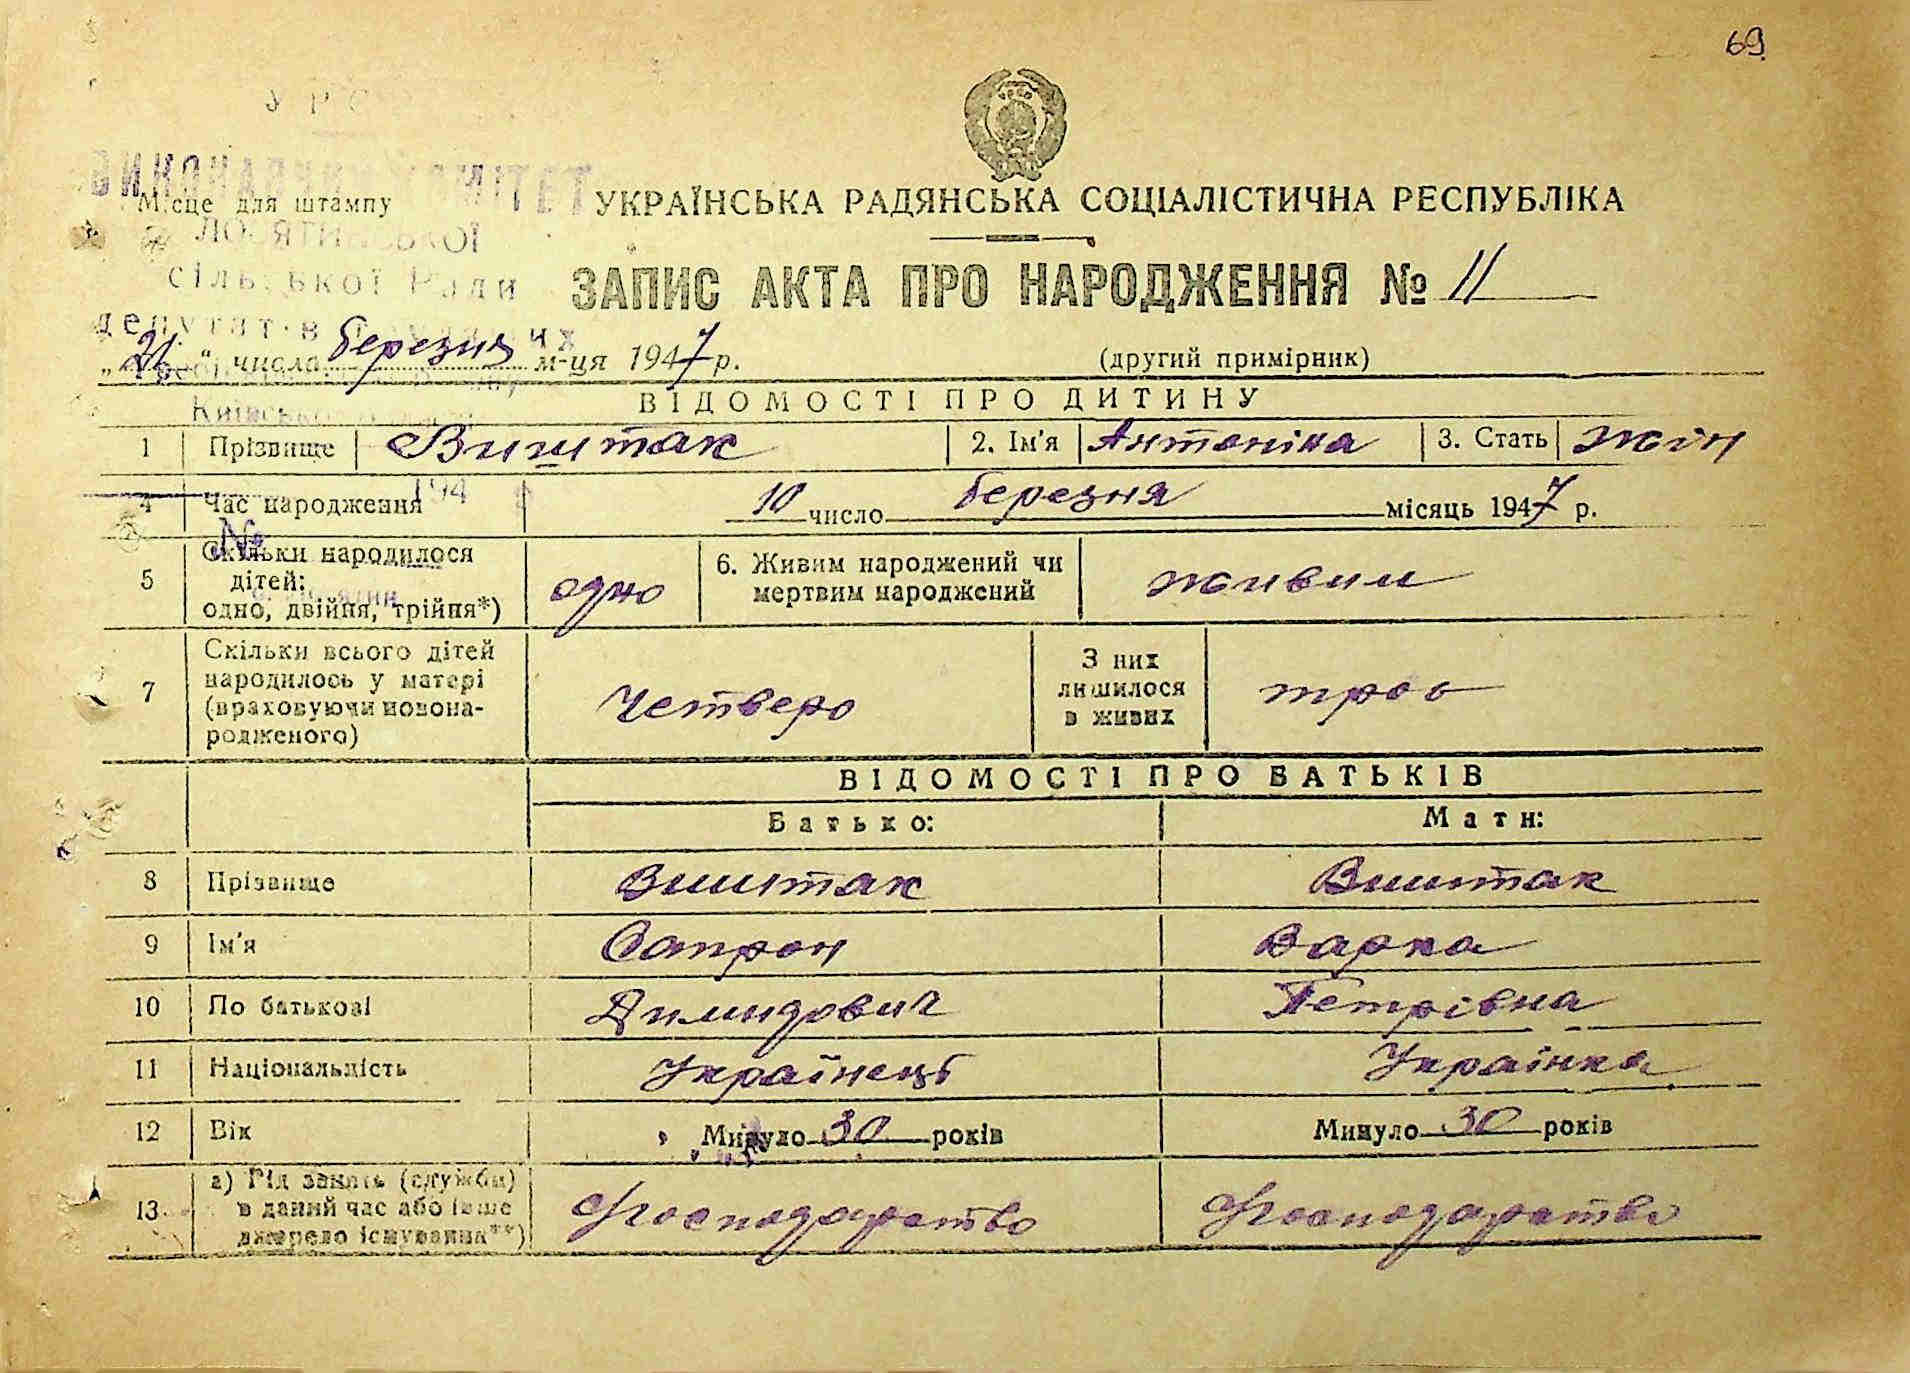 69
УРС
ВИКОНАВЧИЙ КОМІТЕТ
Місце для штампу
УКРАЇНСЬКА РАДЯНСЬКА СОЦІАЛІСТИЧНА РЕСПУБЛІКА
сільської Ради
ЗАПИС АКТА ПРО НАРОДЖЕННЯ № 11
депутатів
„21“ числа березня м-ця 1947 р.
(другий примірник)
ВІДОМОСТІ ПРО ДИТИНУ
1 Прізвище Виштак 2. Ім'я Антоніна 3. Стать жін
194
4 Час народження 10 число березня місяць 1947 р.
№
5 Скільки народилося дітей: одно, двійня, трійня*) одно 6. Живим народжений чи мертвим народжений живим
7 Скільки всього дітей народилось у матері (враховуючи новонародженого) четверо З них лишилося в живих троє
ВІДОМОСТІ ПРО БАТЬКІВ
Батько: Мати:
8 Прізвище Виштак Виштак
9 Ім'я Сапрон Варка
10 По батькові Димидович Петрівна
11 Національність Українець Українка
12 Вік Минуло 30 років Минуло 30 років
13 а) Рід занять (служби) в даний час або інше джерело існування**) господарство господарство